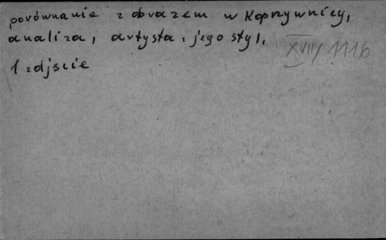 porównanie z obrazem w Koprzywnicy,
analiza, artysta, jego styl,
XVIII/1116
1 zdjęcie